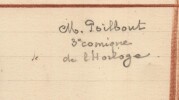 M. Poilbout
3e comique
de l'Horloge